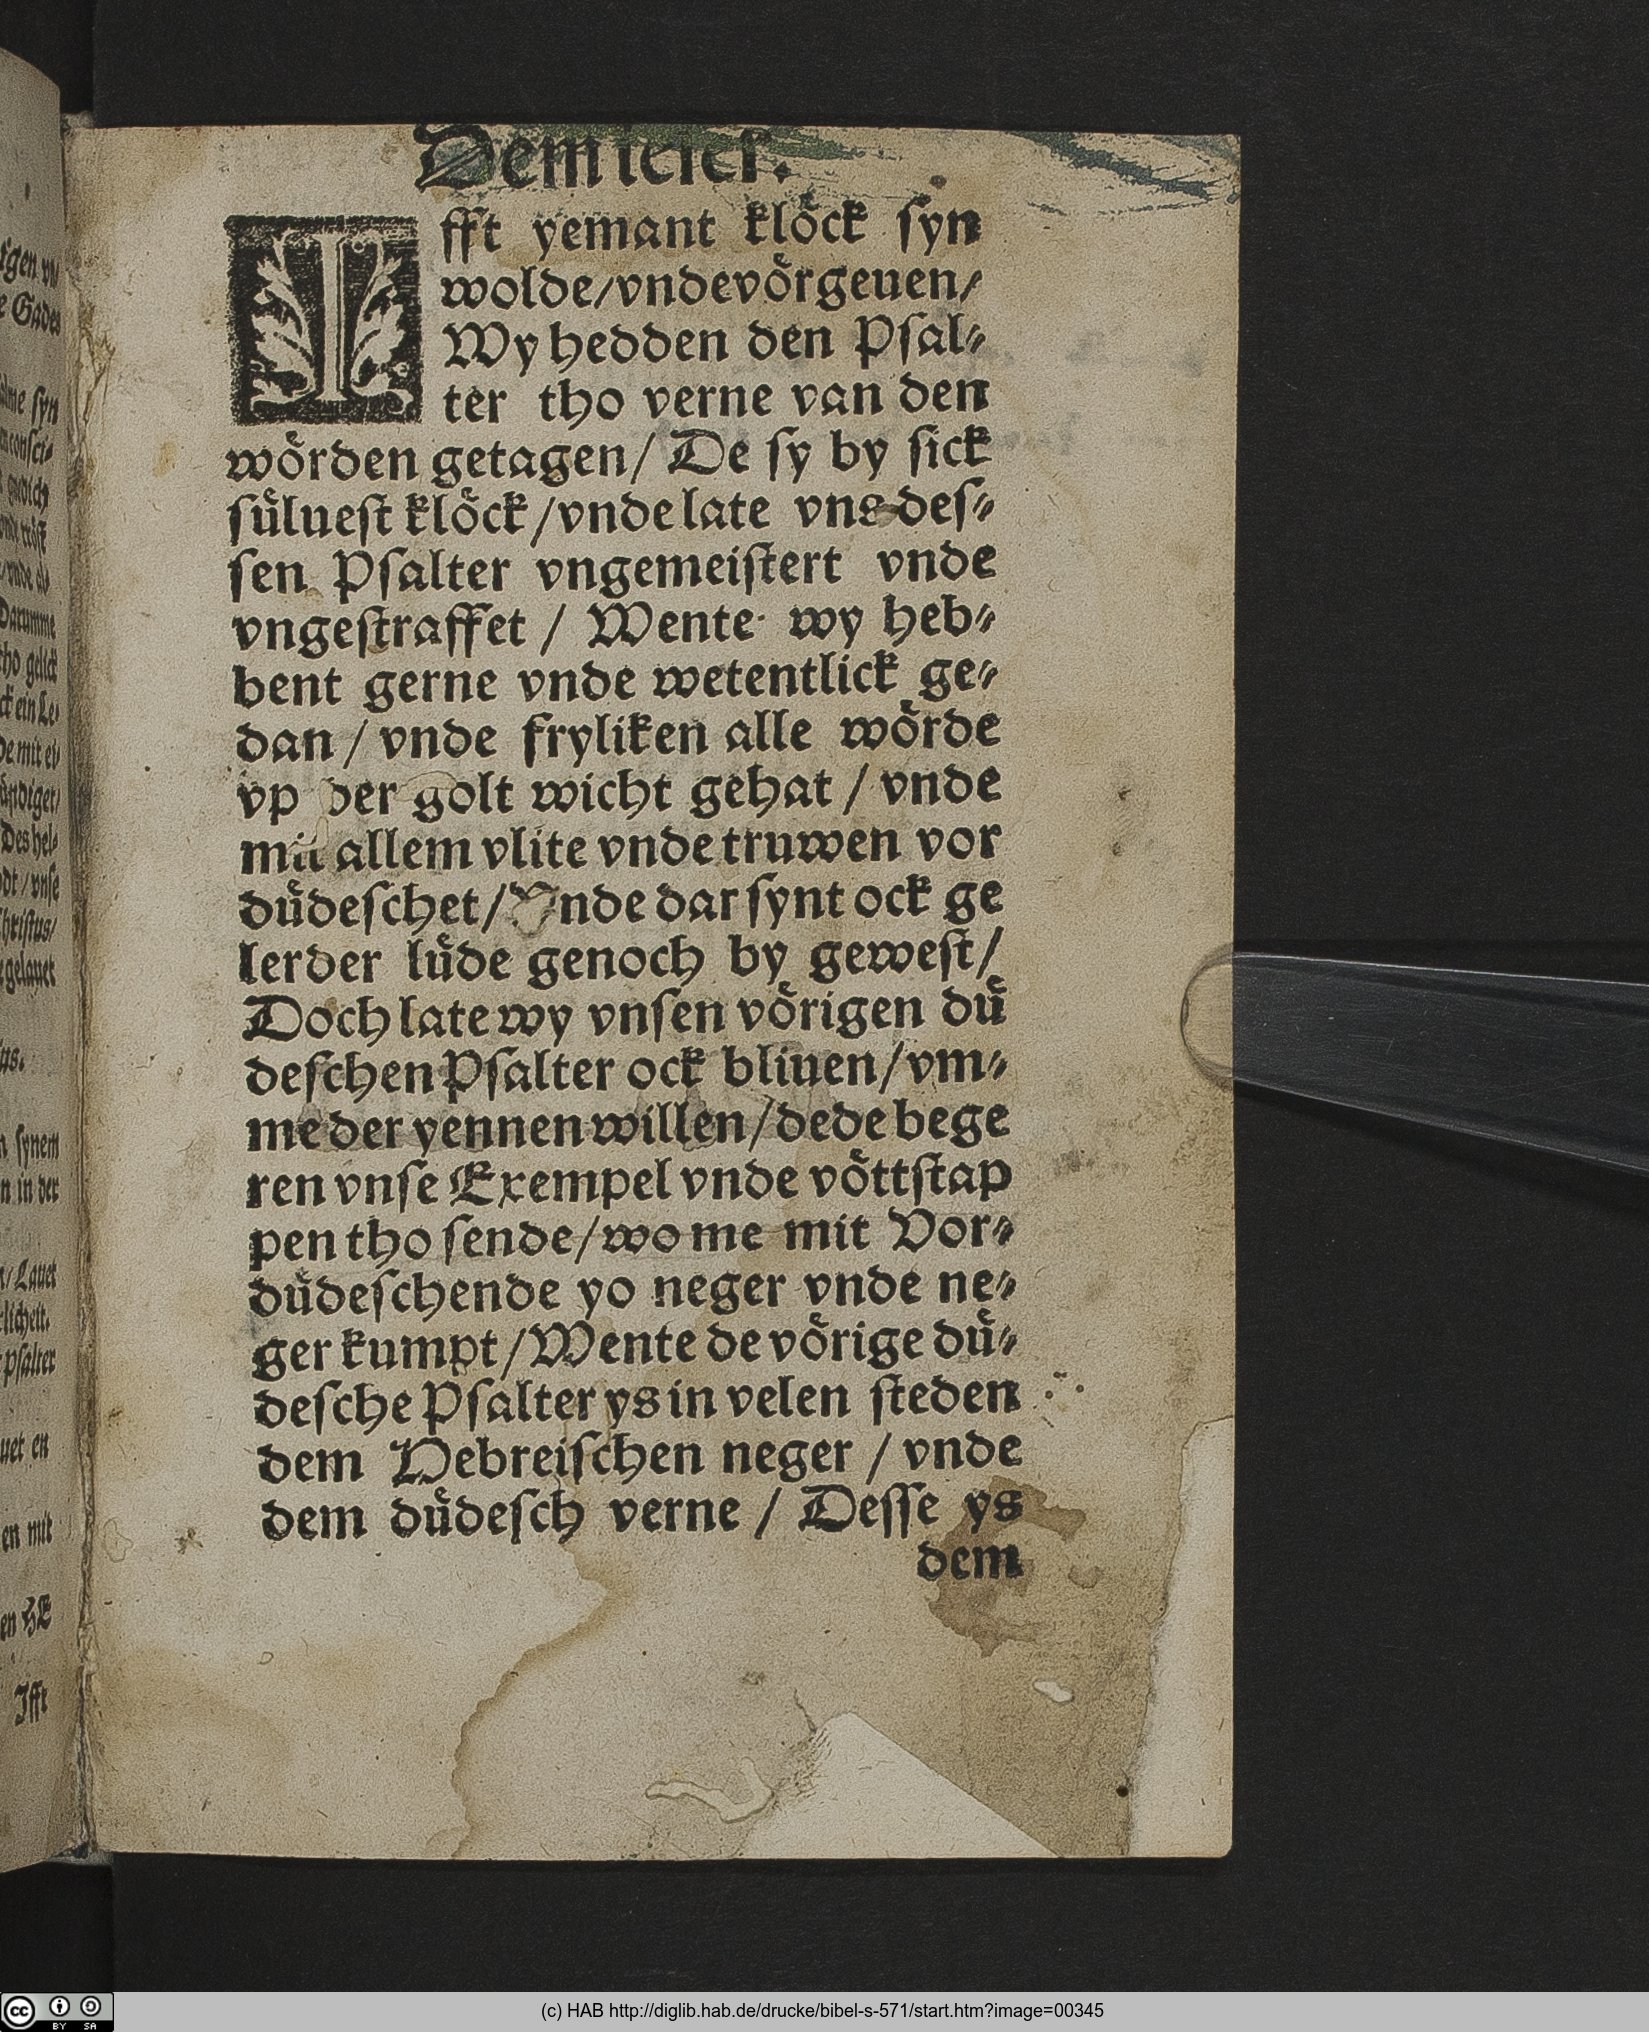 Dem leser.
Ifft yemant klöck syn
wolde/vnde vörgeuen/
Wy hedden den Psal⸗
ter tho verne van den
wörden getagen/ De sy by sick
süluest klöck/vnde late vns des⸗
sen Psalter vngemeistert vnde
vngestraffet / Wente wy heb⸗
bent gerne vnde wetentlick ge⸗
dan / vnde fryliken alle wörde
vp der golt wicht gehat / vnde
mit allem vlite vnde truwen vor
düdeschet/ Vnde dar synt ock ge
lerder lüde genoch by gewest/
Doch late wy vnsen vörigen dü
deschen Psalter ock bliuen/vm⸗
me der yennen willen/dede bege
ren vnse Exempel vnde vöttstap
pen tho sende/wo me mit Vor⸗
düdeschende yo neger vnde ne⸗
ger kumpt/Wente de vörige dü⸗
desche Psalter ys in velen steden
dem Hebreischen neger / vnde
dem düdesch verne / Desse ys
dem
(c) HAB http://diglib.hab.de/drucke/bibel-s-571/start.htm?image=00345
cc BY SA